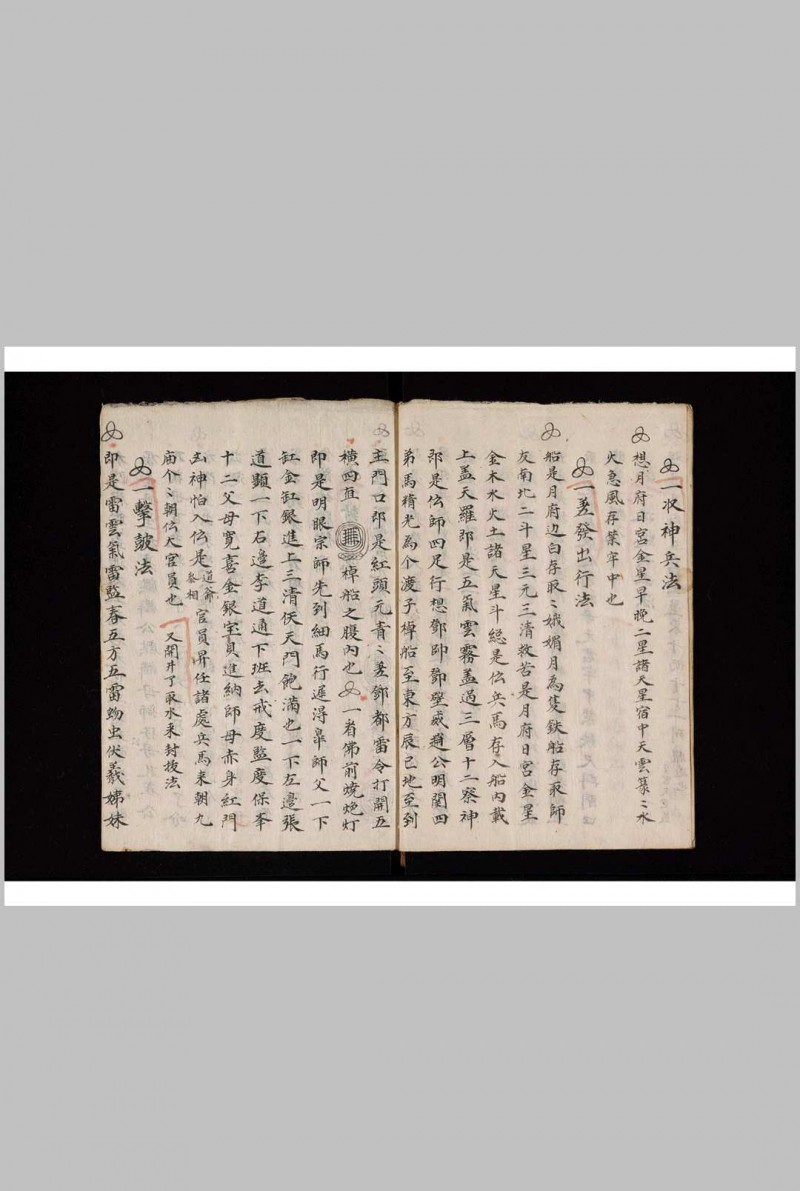 一收神兵法
想月府日宮金星早晚二星諸天星宿中天雲篆〻水
火急風存禁牢中也
一差發出行法
船是月府边白存取〻娥媚月為隻鉄船存取師
友南北二斗星三元三清救苦是月府日宮金星
金木水火土諸天星斗總是伝兵馬存入船內載
上盖天羅即是五氣雲霧盖過三層十二寮神
即是伝師四足行想鄧帥鄧壁威趙公明関四
弟馬積老為个渡子棹船至東方辰己地至到
玉門口即是紅頭元青〻差酆都雷令打開五
橫四直 棹船之腹內也 一看佛前燒炮灯
即是明眼宗師先到細馬行遲淂臯師父一下
缸金缸銀進上三清伏天門飽满也一下左邉張
道顯一下右邉李道通下班去戒度監度保奉
十二父母寬喜金銀宝貢進納師母赤身紅門
出神怡入伝是道爺叅相官員昇任諸處兵馬来朝九
庙个〻朝伝大官員也 又開井了取水来封抜法
一擊皷法
即是雷雲氣雷監春五方五雷蜘虫伏羲姊妹